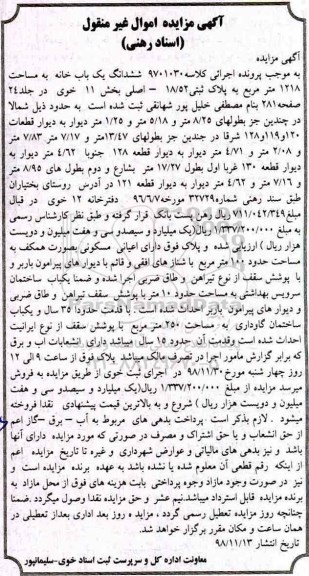 آگهی مزایده اموال غیر منقول
(اسناد رهنی)
آگهی مزایده
به موجب پرونده اجرائی کلاسه ۹۷۰۱۰۳۰ ششدانگ یک باب خانه به مساحت
۱۲۱۸ متر مربع به پلاک ثبتی ۱۸/۵۲ – اصلی بخش ۱۱ خوی در جلد ۲۴
صفحه ۲۸۱ بنام مصطفی خلیل پور شهانقی ثبت شده است به حدود ذیل شمالا
در چندین جز بطولهای ۸/۲۵ متر و ۵/۱۸ متر و ۱/۲۵ متر دیوار به دیوار قطعات
۱۲۰و۱۱۹و۱۲۸ شرقا در چندین جز بطولهای ۱۳/۴۷متر و ۷/۱۷ متر ۷/۸۳ متر
و ۲/۰۸ متر و ۴/۷۱ متر دیوار به دیوار قطعه ۱۲۸ جنوبا ۴/۶۲ متر دیوار به
دیوار قطعه ۱۳۰ غربا اول بطول ۱۷/۲۷ متر بشارع و دوم بطول های ۸/۹۵ متر
و ۷/۱۶ متر و ۴/۶۲ متر دیوار به دیوار قطعه ۱۲۱ در آدرس روستای بختیاران
طبق سند رهنی شماره ۳۲۷۲۹ مورخه ۹۶/۶/۷ دفترخانه ۱۲ خوی در قبال
مبلغ ۷۱۱/۰۴۲/۳۴۹ ریال رهن پست بانک قرار گرفته و طبق نظر کارشناس رسمی
به مبلغ ۱/۳۳۷/۲۰۰/۰۰۰ ریال(یک میلیارد و سیصدو سی و هفت میلیون و دویست
هزار ریال ) ارزیابی شده و پلاک فوق دارای اعیانی مسکونی بصورت همکف به
مساحت حدود ۱۰۰ متر مربع با شناژ های افقی و قائم با دیوار های پیرامون باربر و
با پوشش سقف از نوع تیراهن و طاق ضربی اجرا شده و ضمنا یکباب ساختمان
سرویس بهداشتی به مساحت حدود ۱۰ متر با پوشش سقف تیراهن و طاق ضربی
و دیوار های پیرامون باربر احداث شده است با قدمت حدودا ۳۵ سال و یکباب
ساختمان گاوداری به مساحت ۲۵۰ متر مربع با پوشش سقف از نوع ایرانیت
احداث شده است وقدمت آن حدود ۱۵ سال میباشد دارای انشعابات اب و برق
که برابر گزارش مأمور اجرا در تصرف مالک میباشد پلاک فوق از ساعت ۹ الی ۱۲
روز چهار شنبه مورخ ۹۸/۱۱/۳۰ در اجرای ثبت خوی از طریق مزایده به فروش
میرسد مزایده از مبلغ ۱/۳۳۷/۲۰۰/۰۰۰ ریال(یک میلیارد و سیصدو سی و هفت
میلیون و دویست هزار ریال ) شروع و به بالاترین قیمت پیشنهادی نقدا فروخته
میشود . لازم بذکر است پرداخت بدهی های مربوط به آب – برق –گاز اعم
از حق انشعاب و یا حق اشتراک و مصرف در صورتی که مورد مزایده دارای آنها
باشد و نیز بدهی های مالیاتی و عوارض شهرداری و غیره تا تاریخ مزایده اعم
از اینکه رقم قطعی آن معلوم شده یا نشده باشد به عهده برنده مزایده است و
نیز در صورت وجود مازاد وجوه پرداختی بابت هزینه های فوق از محل مازاد به
برنده مزایده قابل استرداد میباشد.نیم عشر و حق مزایده نقدا وصول میگردد .ضمنا
چنانچه روز مزایده تعطیل رسمی گردد ، مزایده روز بعد اداری بعداز تعطیلی در
همان ساعت و مکان مقرر برگزار خواهد شد.
تاریخ انتشار ۹۸/۱۱/۱۳
معاونت اداره کل و سرپرست ثبت اسناد خوی–سلیمانپور